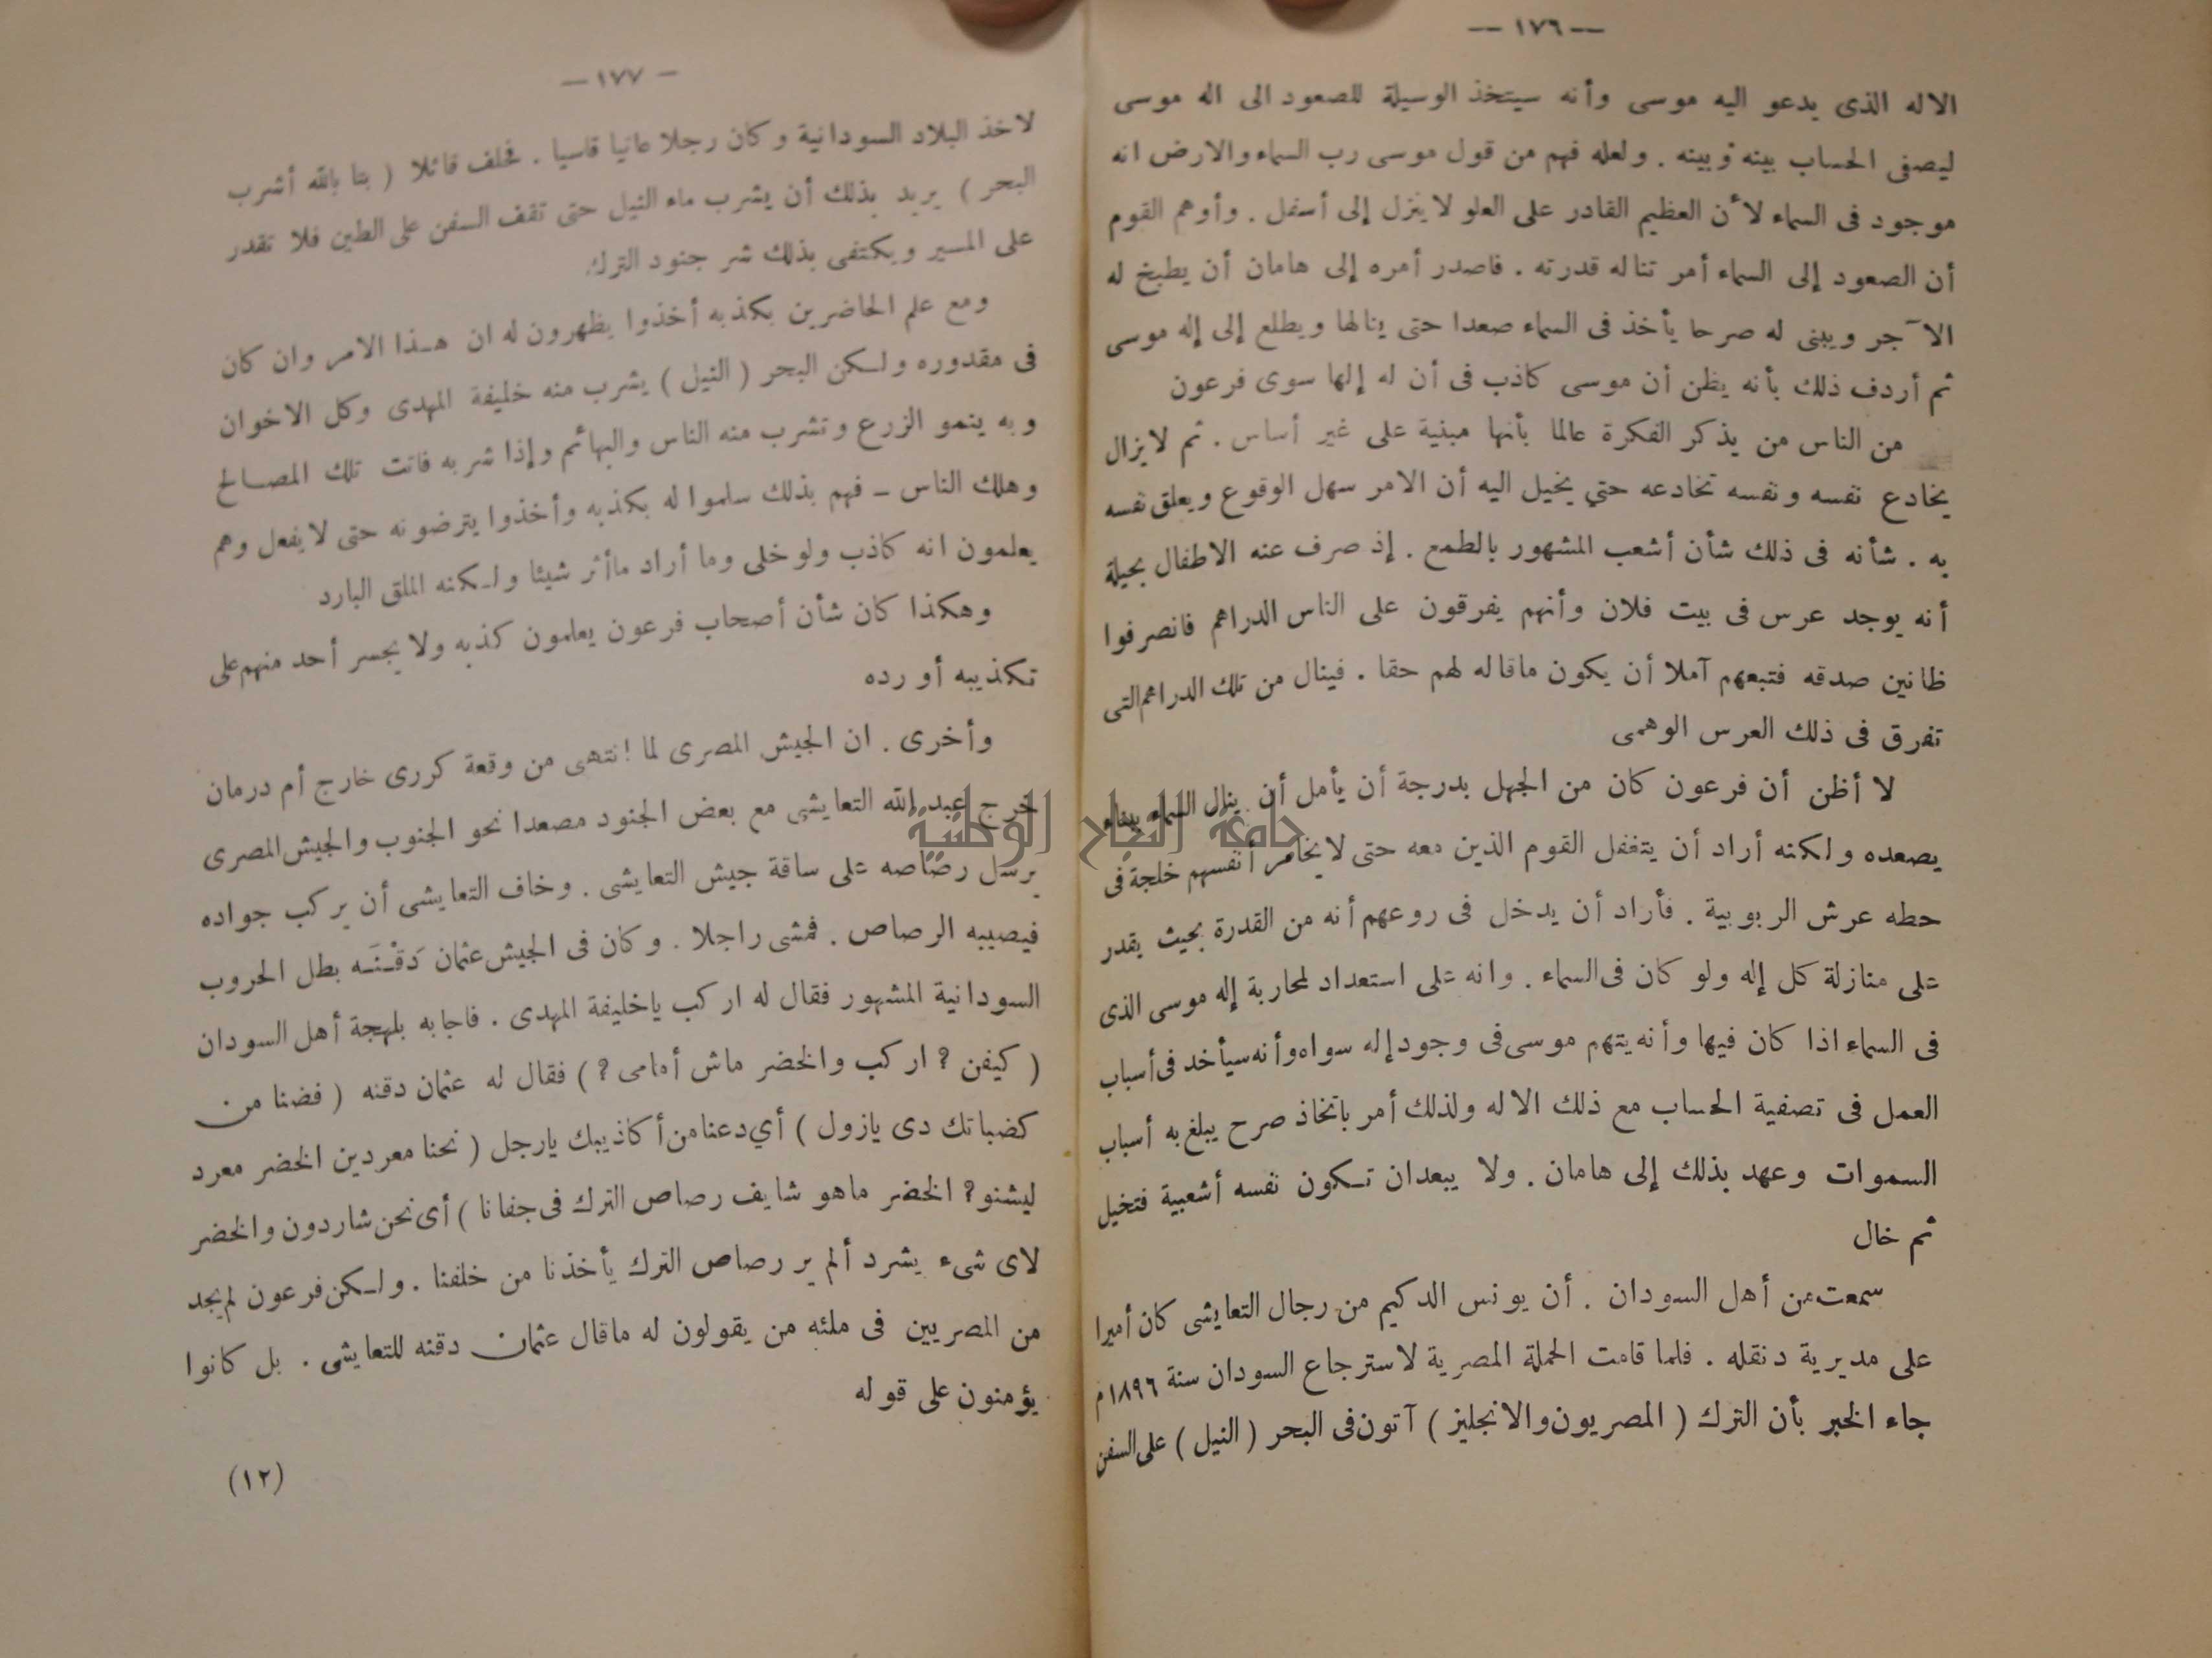 — ١٧٦ —
الاله الذى يدعو اليه موسى وأنه سيتخذ الوسيلة للصعود الى اله موسى
ليصفى الحساب بينه وبينه . ولعله فهم من قول موسى رب السماء والارض انه
موجود فى السماء لأن العظيم القادر على العلو لا ينزل إلى أسفل . وأوهم القوم
أن الصعود إلى السماء أمر تناله قدرته . فاصدر أمره إلى هامان أن يطبخ له
الآجر ويبنى له صرحا يأخذ فى السماء صعدا حتى ينالها ويطلع إلى إله موسى
ثم أردف ذلك بأنه يظن أن موسى كاذب فى أن له إلها سوى فرعون
من الناس من يذكر الفكرة عالما بأنها مبنية على غير أساس . ثم لا يزال
يخادع نفسه ونفسه تخادعه حتي يخيل اليه أن الامر سهل الوقوع ويعلق نفسه
به . شأنه فى ذلك شأن أشعب المشهور بالطمع . إذ صرف عنه الاطفال بحيلة
أنه يوجد عرس فى بيت فلان وأنهم يفرقون على الناس الدراهم فانصرفوا
ظانين صدقه فتبعهم آملا أن يكون ماقاله لهم حقا . فينال من تلك الدراهم التى
تفرق فى ذلك العرس الوهمى
لا أظن أن فرعون كان من الجهل بدرجة أن يأمل أن ينال السماء ببناء
يصعده ولكنه أراد أن يتغفل القوم الذين معه حتى لا يخامر أنفسهم خلجة فى
حطه عرش الربوبية . فأراد أن يدخل فى روعهم أنه من القدرة بحيث يقدر
على منازلة كل إله ولو كان فى السماء . وانه على استعداد لمحاربة إله موسى الذى
فى السماء اذا كان فيها وأنه يتهم موسى فى وجود إله سواه وأنه سيأخد فى أسباب
العمل فى تصفية الحساب مع ذلك الاله ولذلك أمر باتخاذ صرح يبلغ به أسباب
السموات وعهد بذلك إلى هامان . ولا يبعدان تكون نفسه أشعبية فتخيل
ثم خال
سمعت من أهل السودان . أن يونس الدكيم من رجال التعايشى كان أميرا
على مديرية دنقله . فلما قامت الحملة المصرية لاسترجاع السودان سنة ١٨٩٦م
جاء الخبر بأن الترك ( المصريون والانجليز ) آتون فى البحر ( النيل ) على السفن
— ١٧٧ —
لاخذ البلاد السودانية وكان رجلا عاتيا قاسيا . فحلف قائلا ( بتا بالله أشرب
البحر ) يريد بذلك أن يشرب ماء النيل حتى تقف السفن على الطين فلا تقدر
على المسير ويكتفى بذلك شر جنود الترك
ومع علم الحاضرين بكذبه أخذوا يظهرون له ان هذا الامر وان كان
فى مقدوره ولكن البحر ( النيل ) يشرب منه خليفة المهدى وكل الاخوان
وبه ينمو الزرع وتشرب منه الناس والبهائم وإذا شربه فاتت تلك المصالح
وهلك الناس — فهم بذلك سلموا له بكذبه وأخذوا يترضونه حتى لا يفعل وهم
يعلمون انه كاذب ولو خلى وما أراد ماأثر شيئا ولكنه الملق البارد
وهكذا كان شأن أصحاب فرعون يعلمون كذبه ولا يجسر أحد منهم على
تكذيبه أو رده
وأخرى . ان الجيش المصرى لما انتهى من وقعة كررى خارج أم درمان
خرج عبد الله التعايشى مع بعض الجنود مصعدا نحو الجنوب والجيش المصرى
يرسل رصاصه على ساقة جيش التعايشى . وخاف التعايشى أن يركب جواده
فيصيبه الرصاص . فمشى راجلا . وكان فى الجيش عثمان دَقْنَه بطل الحروب
السودانية المشهور فقال له اركب ياخليفة المهدى . فاجابه بلهجة أهل السودان
( كيفن ? اركب والخضر ماش أمامى ? ) فقال له عثمان دقنه ( فضنا من
كضباتك دى يازول ) أي دعنا من أكاذيبك يارجل ( نحنا معردين الخضر معرد
ليشنو ? الخضر ماهو شايف رصاص الترك فى جفانا ) أى نحن شاردون والخضر
لاى شىء يشرد ألم ير رصاص الترك يأخذنا من خلفنا . ولكن فرعون لم يجد
من المصريين فى ملئه من يقولون له ماقال عثمان دقنه للتعايشى . بل كانوا
يؤمنون على قوله
(١٢)
جامعة النجاح الوطنية